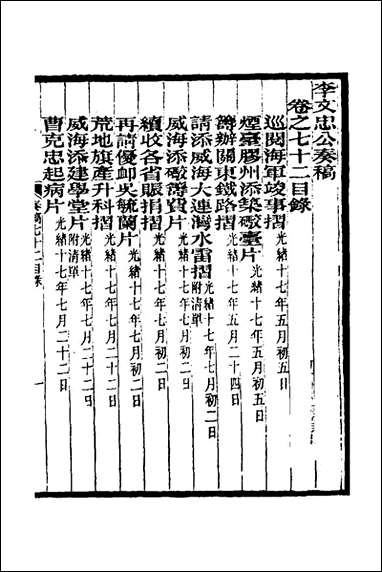 李文忠公奏稿
卷之七十二目錄
巡閱海軍竣事摺光緒十七年五月初五日
煙臺膠州添築礮臺片光緒十七年五月初五日
籌辦關東鐵路摺光緒十七年五月二十四日
請添威海大連灣水雷摺附清單光緒十七年七月初二日
威海添礮籌費片光緒十七年七月初二日
續收各省賑捐摺光緒十七年七月初二日
再請優卹吳毓蘭片光緒十七年七月初二日
荒地旗產升科摺光緒十七年七月二十二日
威海添建學堂片附清單光緒十七年七月二十二日
曹克忠起病片光緒十七年七月二十二日
奏稿七十二目錄
一